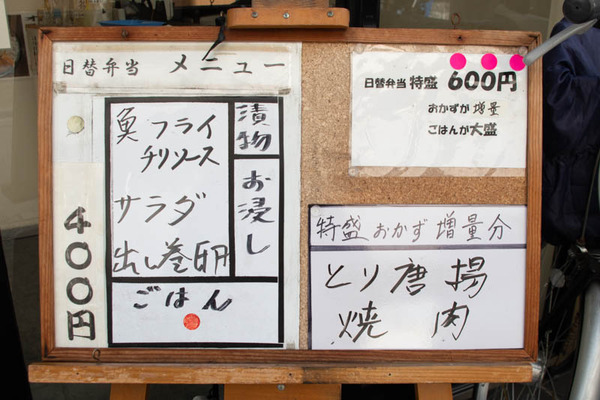 日替弁当 メニュー
魚フライ
チリソース
サラダ
出し巻卵
漬物
お浸し
ごはん
400円
日替弁当 特盛 600円
おかずが 増量
ごはんが大盛
特盛おかず増量分
とり唐揚
焼肉